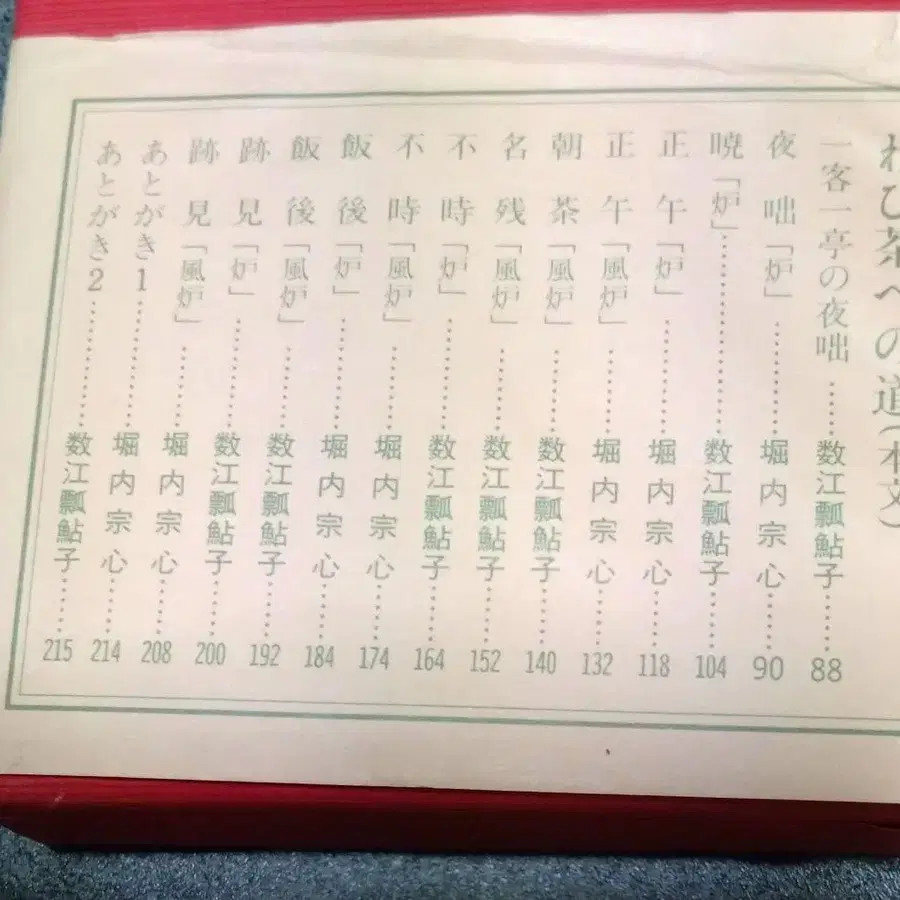 わび茶への道(本文)
一客一亭の夜咄……数江瓢鮎子……88
夜咄「炉」……堀内宗心……90
暁「炉」……数江瓢鮎子……104
正午「炉」……堀内宗心……118
正午「風炉」……堀内宗心……132
朝茶「風炉」……数江瓢鮎子……140
名残「風炉」……数江瓢鮎子……152
不時「炉」……数江瓢鮎子……164
不時「風炉」……堀内宗心……174
飯後「炉」……堀内宗心……184
飯後「風炉」……数江瓢鮎子……192
跡見「炉」……数江瓢鮎子……200
跡見「風炉」……堀内宗心……208
あとがき1……堀内宗心……214
あとがき2……数江瓢鮎子……215